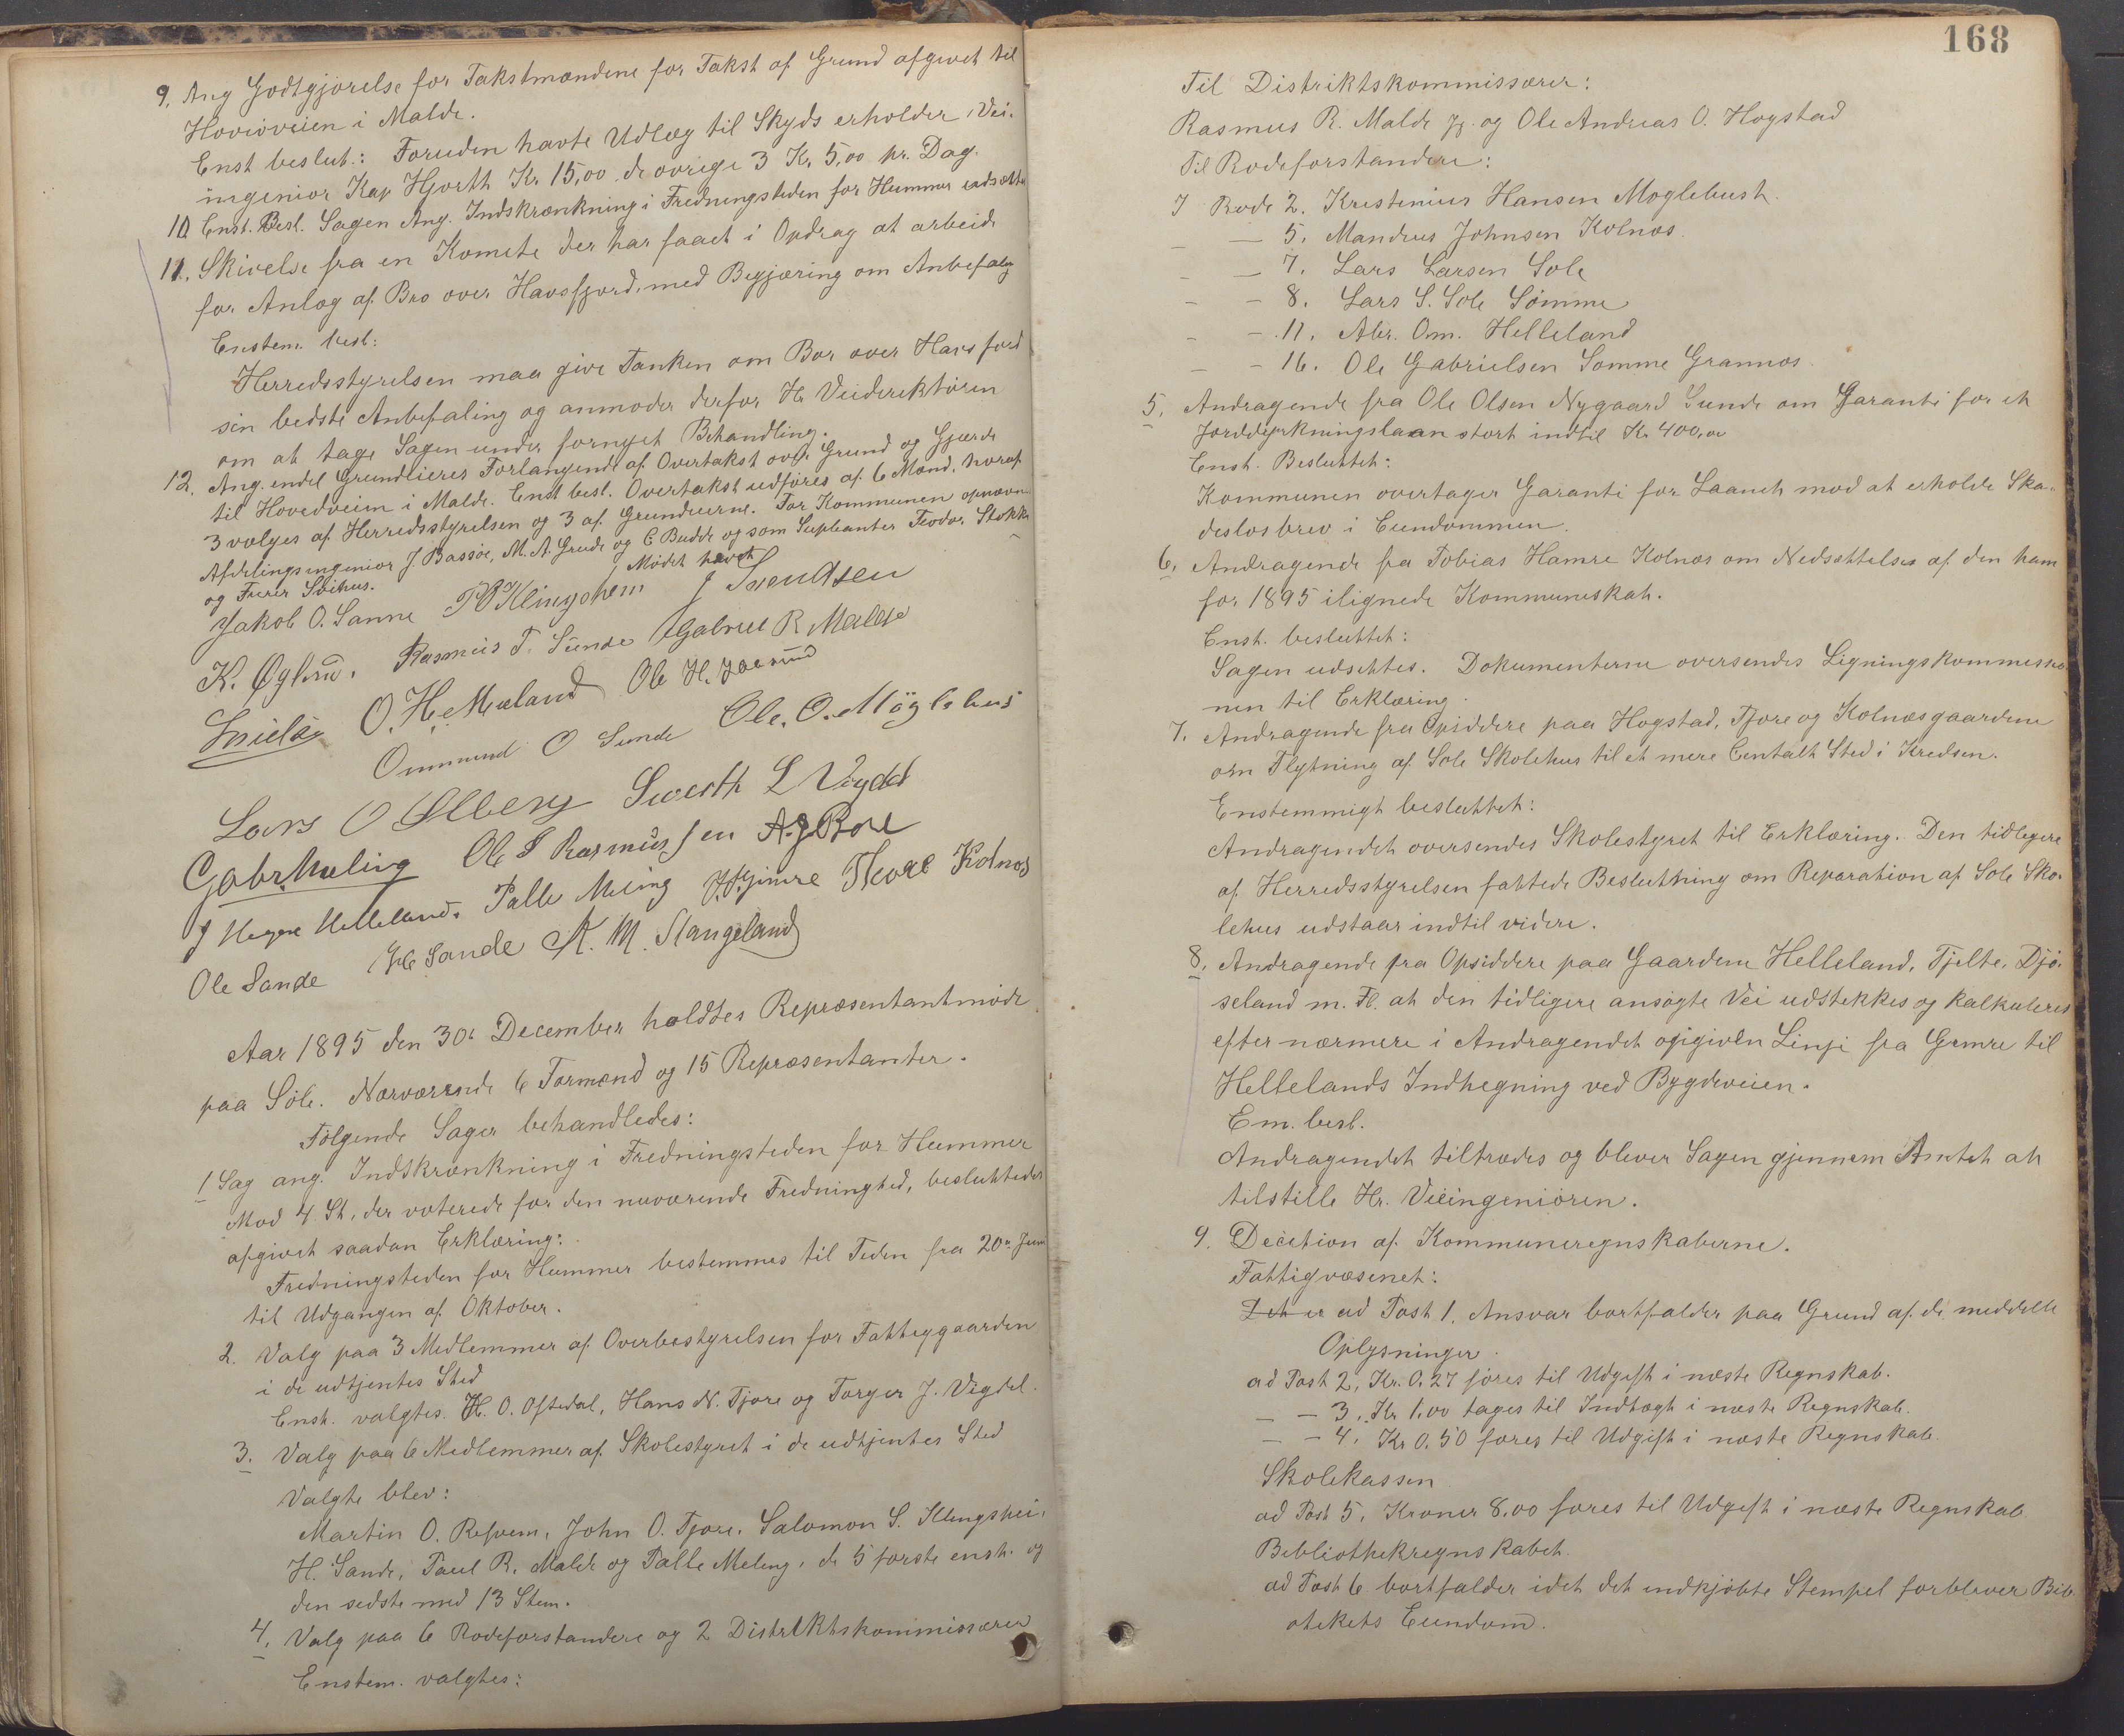 9. Ang Godtgjørelse for Takstmændene for Takst af Grund afgivet til
Hovedveien i Malde.
Enst beslut.: Foruden havte Udlæg til Skyds erholder Vei-
ingeniør Kap Hjorth Kr. 15,00 de øvrige 3 Kr. 5,00 pr. Dag.
10. Enst. Besl. Sagen Ang. Indskrænkning i Fredningstiden for Hummer udsættes
11. Skivelse fra en Komite der har faaet i Opdrag at arbeide
for Anlæg af Bro over Havsfjord, med Begjæring om Anbefaling
Enstem. besl:
Herredsstyrelsen maa give Tanken om Bor over Havsfjord
sin bedste Anbefaling og anmoder derfor Hr Veiderektøren
om at tage Sagen under fornyet Behandling.
12. Ang. endel Grundeieres Forlangende af Overtakst over Grund og Gjærde
til Hovedveien i Malde. Enst besl. Overtakst udføres af 6 Mænd, hvoraf
3 vælges af Herredsstyrelsen og 3 af Grundeierne. For Kommunen opnævn
Afdelingsingeniør J Bassøe, M. A. Grude og C Budde og som Supleanter Teodor Stokke
og Furer Soihus.
Mødet hævet
Jakob O. Sanne Klingshem J Svendsen
K. Øglænd. Rasmus T. Sunde Gabriel R Malde
O. H. Meland Ole H. Joasund
Ommund O Sunde Ole. O. Møglebus
Lars O Ølberg Sverth L Vigdel
Gabr. Meling Ole S Rasmussen A. J. Bore
J Hegre Helleland. Palle Meling Gimre Theoge Kolnos
Ole Sande H Sande K. M. Stangeland
Aar 1895 den 30te December holdtes Repræsentantmøde
paa Sole. Nærværende 6 Formænd og 15 Repræsentanter.
Følgende Sager behandledes:
1 Sag ang. Indskrænkning i Fredningstiden for Hummer
Mod 4 St, der voterede for den nuværende Fredningtid, besluttedes
afgivet saadan Erklæring:
Fredningstiden for Hummer bestemmes til Tiden fra 20de Juni
til Udgangen af Oktober.
2. Valg paa 3 Medlemmer af Overbestyrelsen for Fattiggaarden
i de udtjentes Sted
Enst. valgtes. H. O. Oftedal, Hans N. Tjore og Torger J. Vigdel.
3. Valg paa 6 Medlemmer af Skolestyret i de udtjentes Sted
Valgte blev:
Martin O. Refsem, John O. Tjore, Salomon S. Klingshei,
H. Sande, Paul R. Malde og Palle Meling, de 5 første enst. og
den sedste med 13 Stem.
4. Valg paa 6 Rodeforstandere og 2 Distriktskommissærer
Enstem. valgtes:
168
Til Distriktskommissærer:
Rasmus R. Malde jg. og Ole Andreas O. Hogstad
Til Rodeforstandere:
I Rode 2. Kristenius Hansen Moglebust.
— — 5. Mandrus Johnsen Kolnæs.
— — 7. Lars Larsen Sole
— — 8. Lars S. Sole Sømme
— — 11. Abr. Om. Helleland
— — 16. Ole Gabrielsen Somme Grannæs.
5. Andragende fra Ole Olsen Nygaard Sunde om Garanti for et
Jorddyrkningslaan stort indtil Kr 400,00
Enst. Besluttet:
Kommunen overtager Garanti for Laanet mod at erholde Ska-
desløsbrev i Eiendommen.
6. Andragende fra Tobias Hamre Kolnæs om Nedsættelse af den ham
for 1895 ilignede Kommuneskat.
Enst. besluttet:
Sagen udsettes. Dokumenterne oversendes Ligningskommissio
nen til Erklæring.
7. Andragende fra Opsiddere paa Hogstad, Tjore og Kolnæsgaardene
om Flytning af Sole Skolehus til et mere Centalt Sted i Kredsen.
Enstemmigt besluttet:
Andragendet oversendes Skolestyret til Erklæring. Den tidligere
af Herredsstyrelsen fattede Beslutning om Reparation af Sole Sko-
lehus udstaar indtil videre.
8. Andragende fra Opsiddere paa Gaardene Helleland, Tjelte, Djø-
seland m. Fl. at den tidligere ansøgte Vei udstekkes og kalkuleres
efter nærmere i Andragendet opigiven Linje fra Gimre til
Hellelands Indhegning ved Bygdeveien.
Em. besl.
Andragendet tiltrædes og blever Sagen gjennem Amtet at
tilstille Hr. Veiingeniøren.
9. Decition af Kommuneregnskaberne.
Fattigvæsenet:
Det er ad Post 1. Ansvar bortfalder paa Grund af de meddelte
Oplysninger.
ad Post 2, Kr. 0,27 føres til Udgift i næste Regnskab.
— — 3, Kr 1,00 tages til Indtægt i næste Regnskab.
— — 4, Kr 0,50 føres til Udgift i næste Regnskab.
Skolekassen
ad Post 5, Kroner 8,00 føres til Udgift i næste Regnskab
Bibliothekregnskabet.
ad Post 6 bortfalder idet det indkjøbte Stempel forbliver Bib
otekets Eiendom.